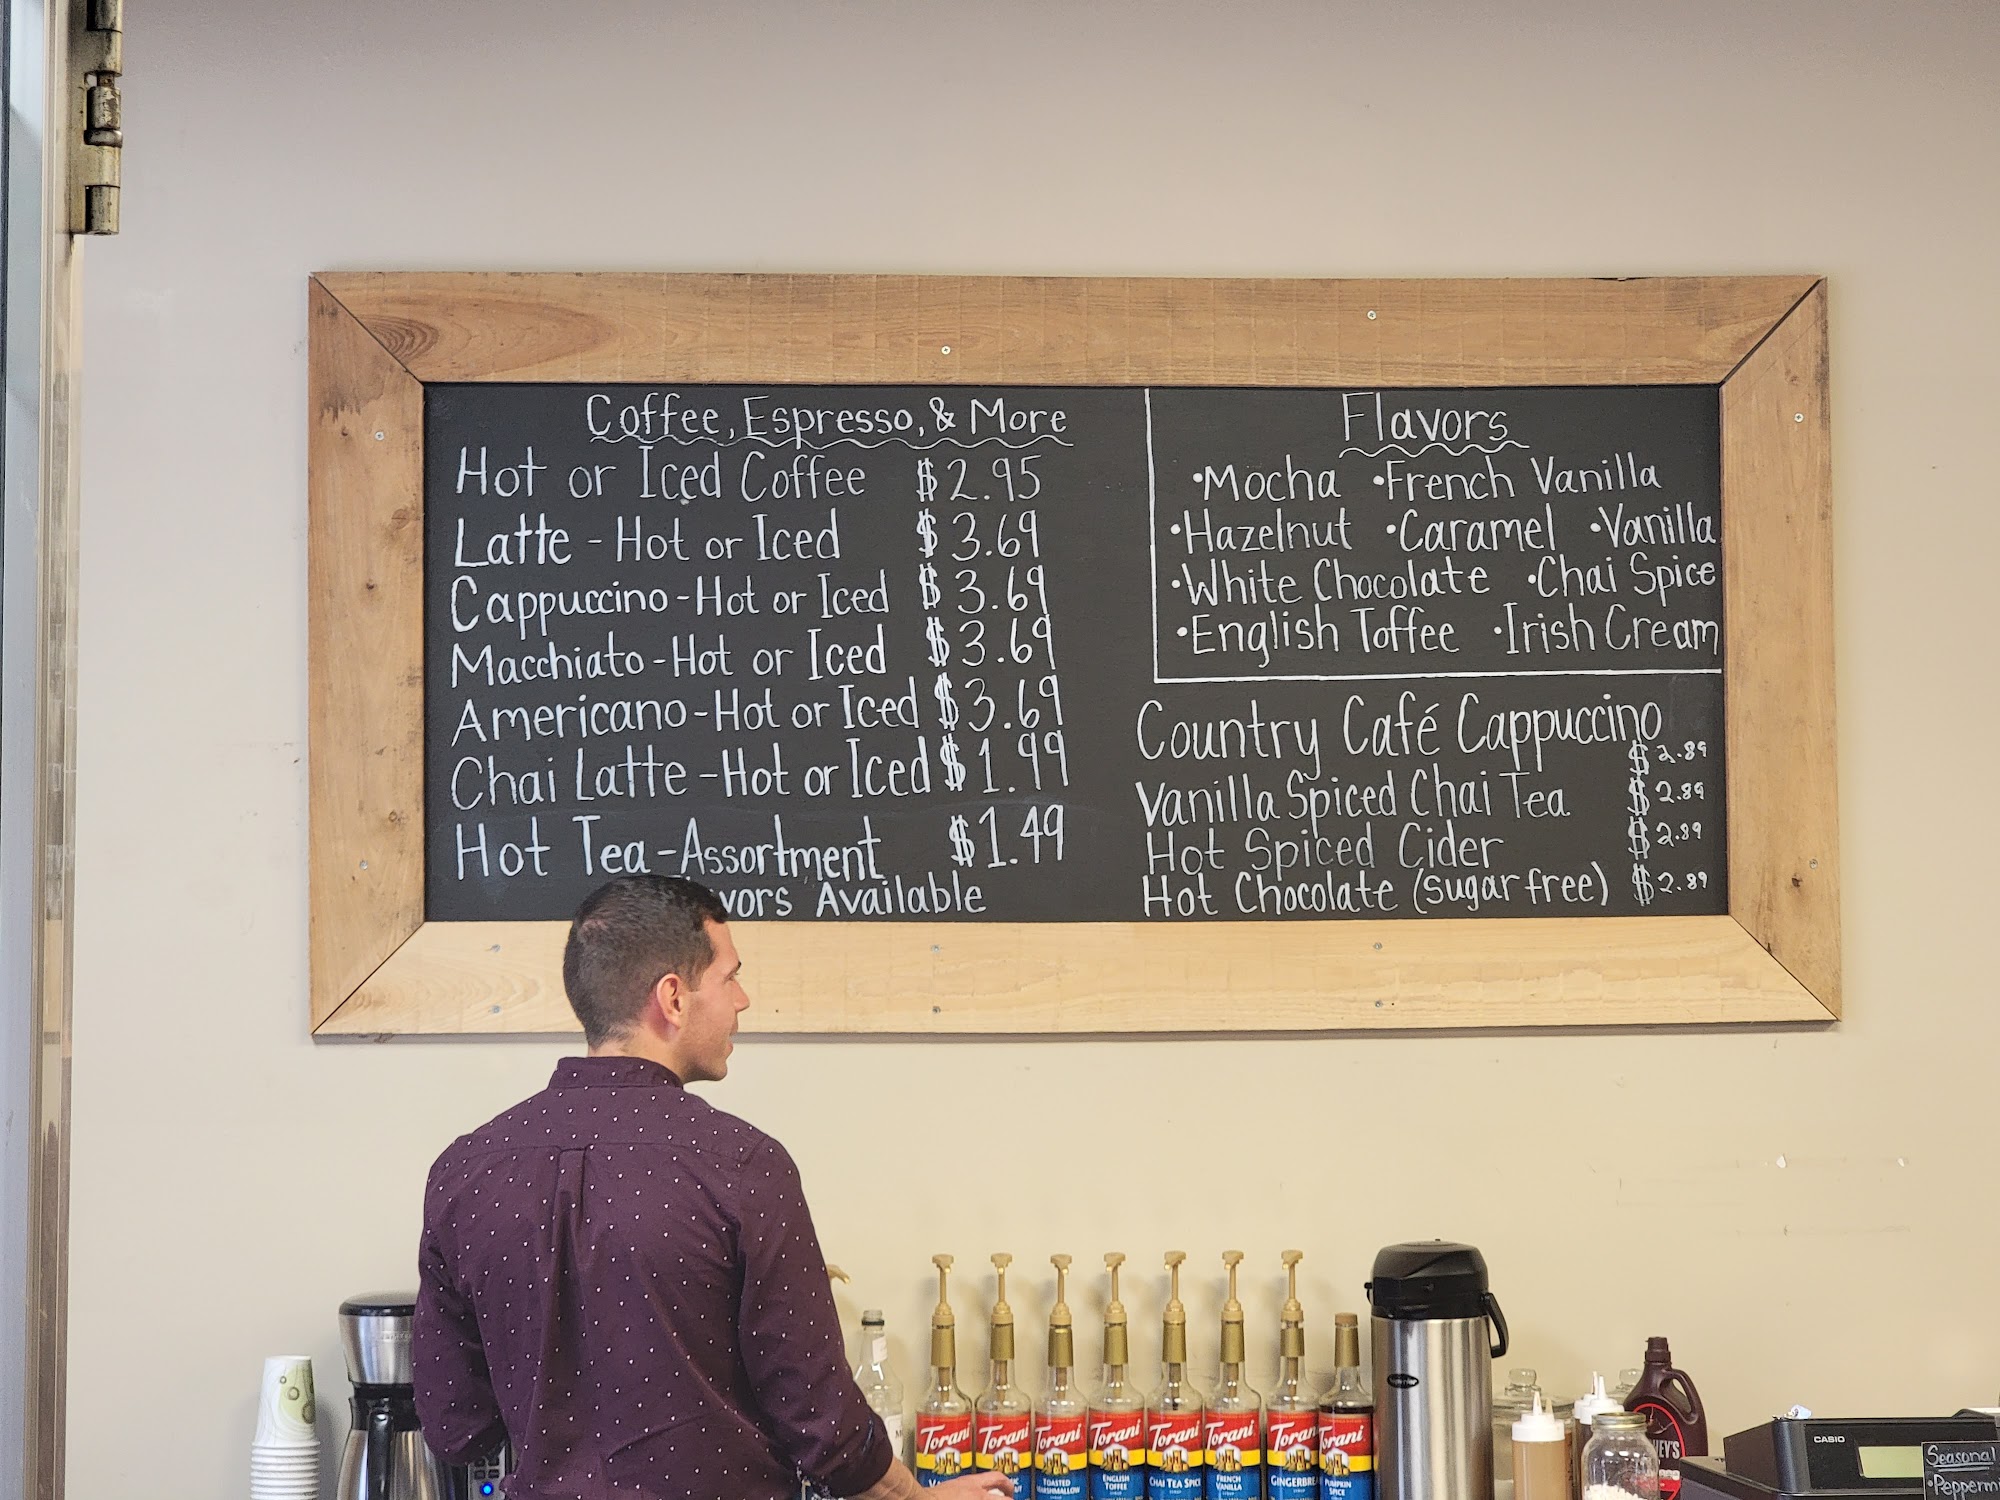 Coffee, Espresso, & More
Hot or Iced Coffee $2.95
Latte - Hot or Iced $3.69
Cappuccino - Hot or Iced $3.69
Macchiato - Hot or Iced $3.69
Americano - Hot or Iced $3.69
Chai Latte - Hot or Iced $1.99
Hot Tea - Assortment $1.49
Available
Flavors
•Mocha •French Vanilla
•Hazelnut •Caramel •Vanilla
•White Chocolate •Chai Spice
•English Toffee •Irish Cream
Country Café Cappuccino $2.89
Vanilla Spiced Chai Tea $2.89
Hot Spiced Cider $2.89
Hot Chocolate (sugar free) $2.89
Torani
Torani
Torani
TOASTED
MARSHMALLOW
Torani
ENGLISH
TOFFEE
Torani
CHAI TEA SPICE
Torani
FRENCH
VANILLA
Torani
Torani
PUMPKIN
SPICE
CASIO
Seasonal